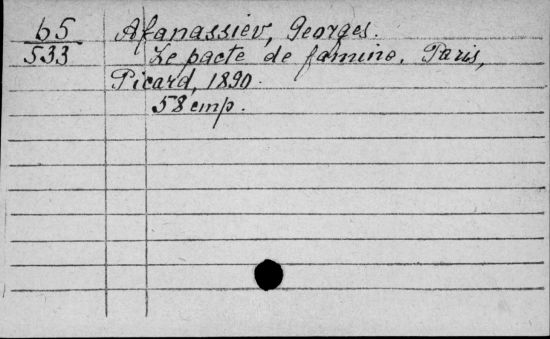 65 Afanassiev, Georges.
533 Le pacte de famine. Paris,
Picard, 1890.
58 стр.